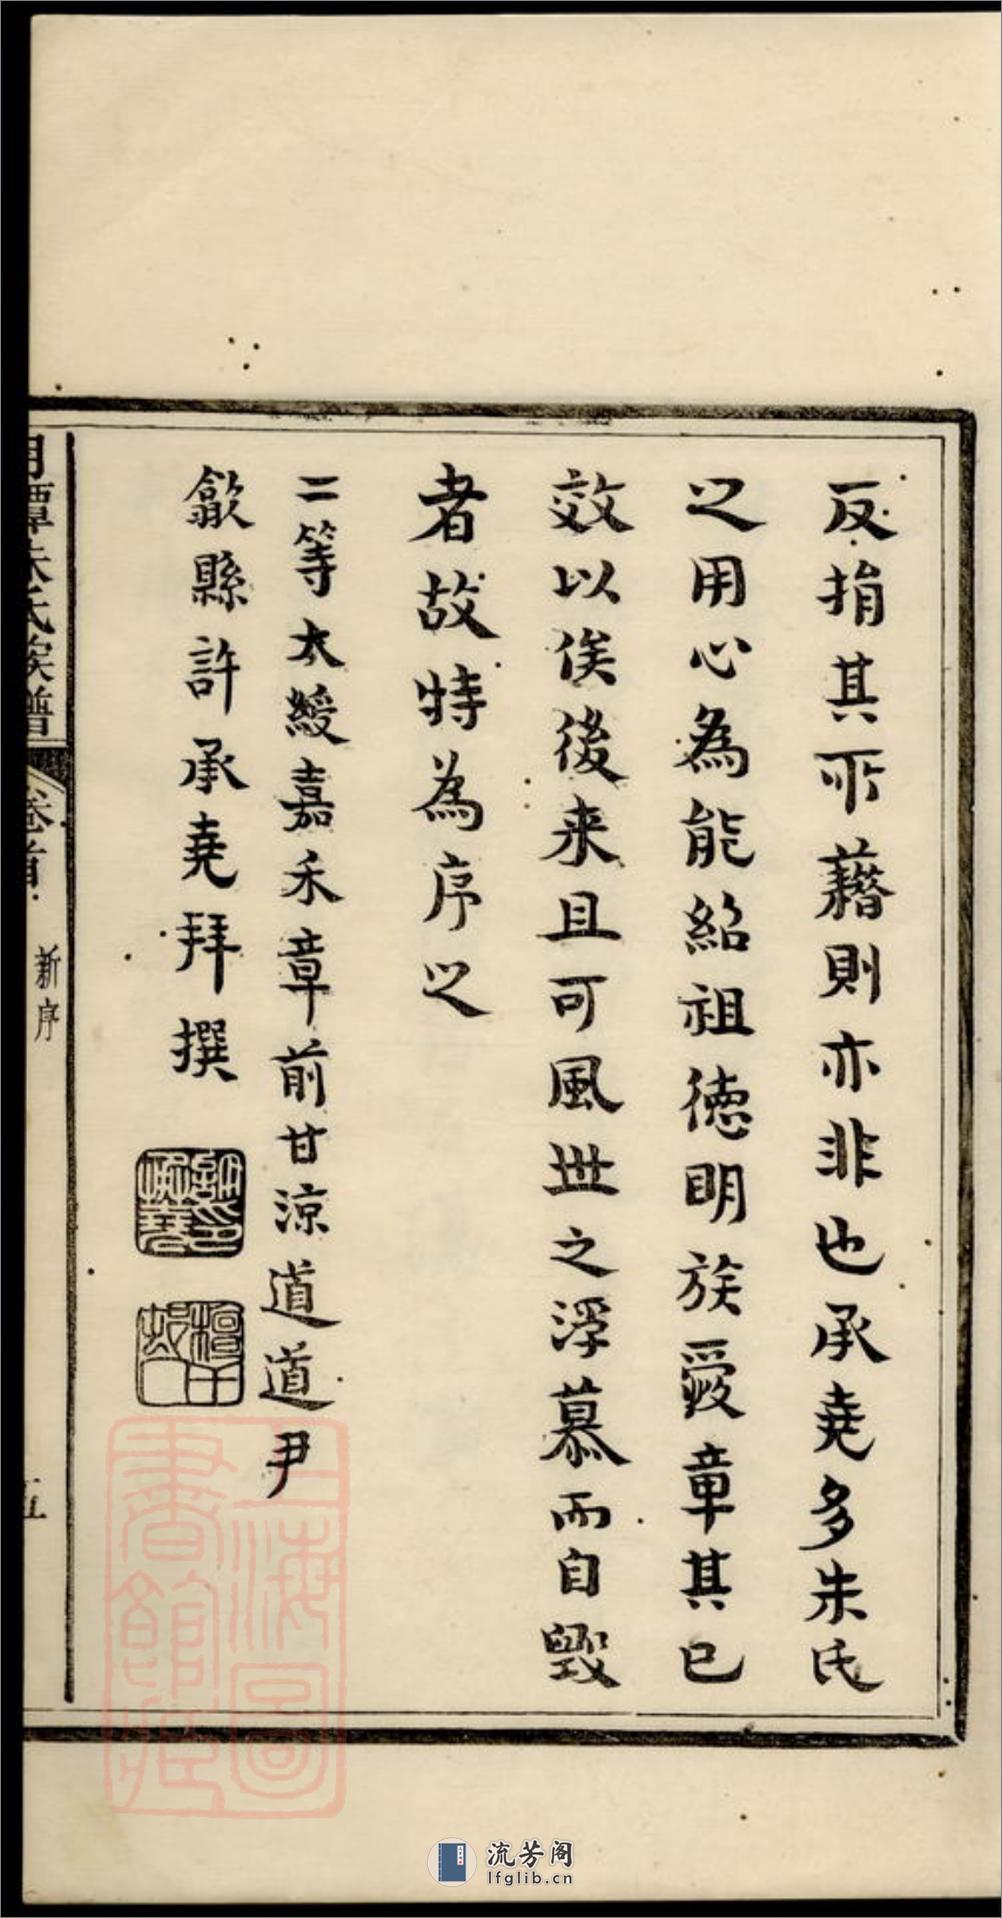 反捐其所藉則亦非也承堯多朱氏
之用心為能紹祖德明族愛章其已
效以俟後来且可風世之浮慕而自毀
者故特為序之
二等大綬嘉禾章前甘涼道道尹
歙縣許承堯拜撰
許印承堯
月潭朱氏族譜
卷首
新序
五
上海圖書館藏
流芳阁
lfglib.cn